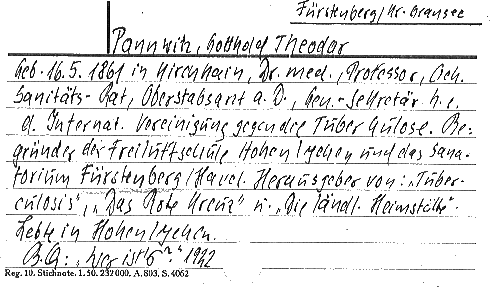 Fürstenberg/Kr. Gransee
Pannwitz, Gotthold Theodor
Geb. 16.5.1861 in Kirchhain, Dr. med., Professor, Geh.
Sanitäts-Rat, Oberstabsarzt a. D., Gen.-Sekretär h. c.
d. Internat. Vereinigung gegen die Tuberkulose. Be-
gründer der Freiluftschule Hohenlychen und des Sana-
torium Fürstenberg/Havel. Herausgeber von: „Tuber-
culosis", „Das Rote Kreuz" u. „Die ländl. Heimstätte".
Lebte in Hohenlychen.
B.Q.: „Wer ist's?" 1922
Reg. 10. Stichnote. 1. 50. 232000. A. 803. S. 4062